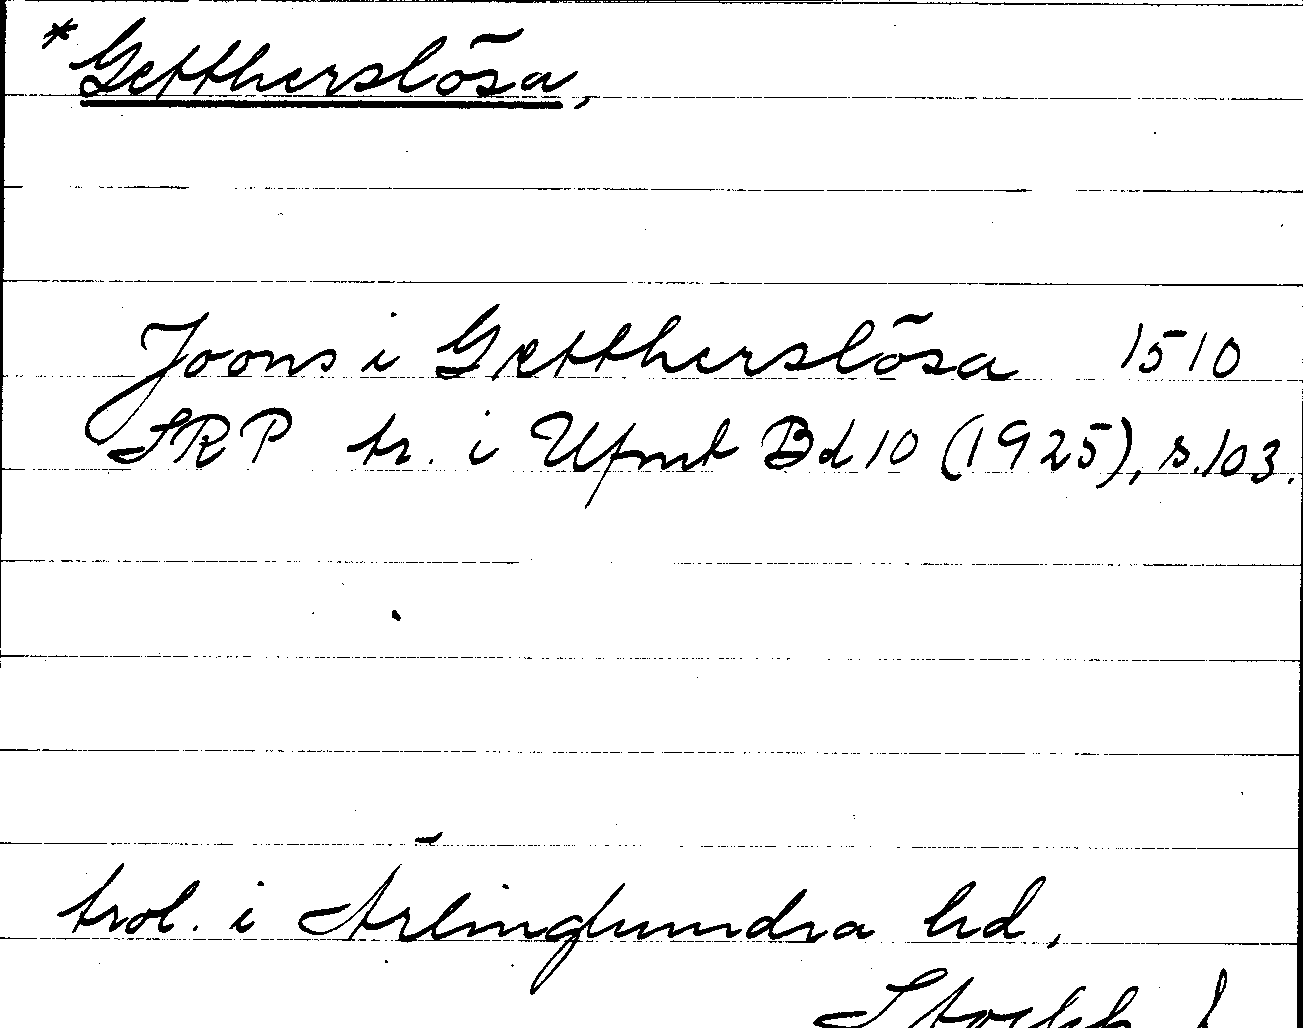 *Gettherslösa,
Joons i Gættherslösa 1510
SRP tr. i Ufmt Bd 10 (1925), s. 103.
trol. i Ärlinghundra hd,
Stockh. l